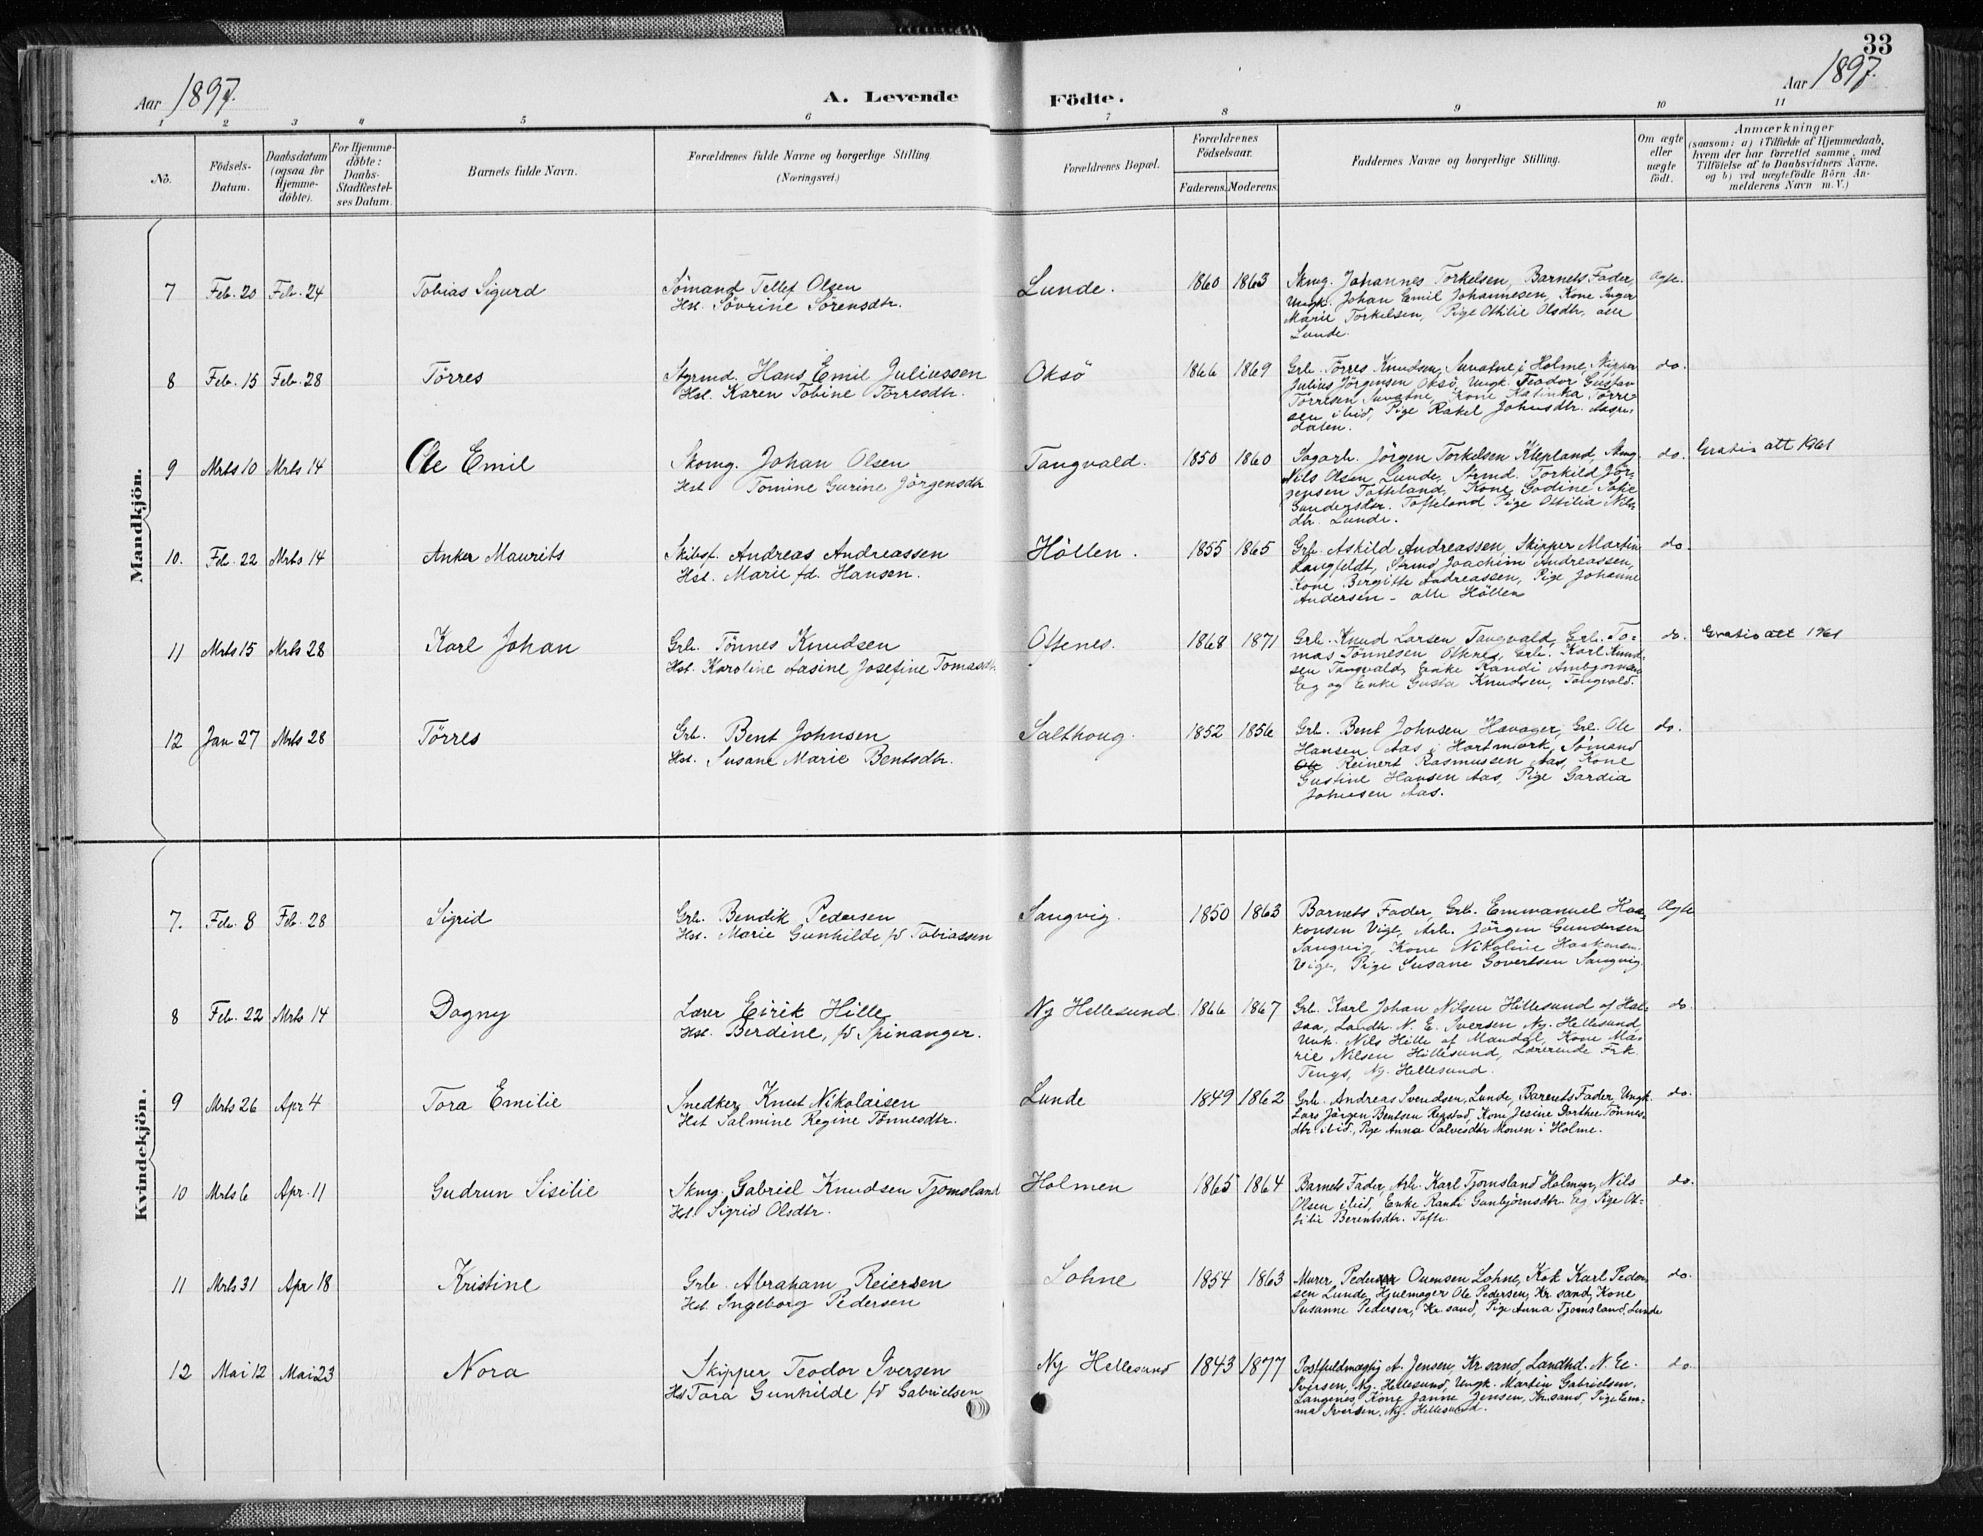 33
Aar 1897.
A. Levende Födte.
Aar 1897.
1 2 3 4 5 6 7 8 9 10 11
No.
Födsels-
Datum.
Daabsdatum
(ogsaa for
Hjemme-
döbte).
For Hjemme-
döbte:
Daabs-
Stadfæstel-
ses Datum.
Barnets fulde Navn.
Forældrenes fulde Navne og borgerlige Stilling
(Næringsvei.)
Forældrenes Bopæl.
Forældrenes
Födselsaar.
Faderens. Moderens.
Faddernes Navne og borgerlige Stilling.
Om ægte
eller
uægte
födt.
Anmærkninger
(saasom: a) i Tilfælde af Hjemmedaab,
hvem der har forrettet samme, med
Tilföielse af to Daabsvidners Navne,
og b) ved uægtefödte Börn An-
melderens Navn m. V.)
Mandkjön.
7 Feb. 20 Feb. 24 Tobias Sigurd
Sömand Tellef Olsen
Hst. Sövrine Sörensdtr.
Lunde. 1860 1863
Skmg. Johannes Torkelsen, Barnets Fader,
Ungk. Johan Emil Johannesen, Kone Inger
Marie Torkelsen, Pige Othilie Olsdtr, alle
Lunde.
Ægte.
8 Feb. 15 Feb. 28 Törres
Styrmd. Hans Emil Juliussen
Hst. Karen Tobine Törresdtr.
Oksö 1866 1869
Grb. Törres Knudsen, i Holme, Skipper
Julius Jörgensen Oksö, Ungk. Teodor Gustav
Törresen Kone Katinka Törre-
sen ibid, Pige Rakel Johnsdtr.
do.
9 Mrts 10 Mrts 14 Ole Emil
Skomg. Johan Olsen
Hst. Tomine Gurine Jörgensdtr
Tangvald. 1850 1860
Sagarb. Jörgen Torkelsen Klepland,
Nils Olsen Lunde, Strmd. Torkild Jör-
gensen Tofteland, Kone Godine Sofie
Gundersdtr. Tofteland Pige Ottilia Nils-
dtr. Lunde.
do. Gratis att 1961
10. Feb. 22 Mrts 14 Anker Maurits
Skibsf. Andreas Andreassen
Hst. Marie fd. Hansen.
Höllen. 1855 1865
Grb. Askild Andreassen, Skipper Martin
Langfeldt, Strmd Joachim Andreassen,
Kone Bergitte Andreassen, Pige Johanne
Andersen - alle Höllen
do.
11 Mrts 15 Mrts 28 Karl Johan
Grb. Tönnes Knudsen
Hst. Karoline Aasine Josefine Tomasdtr
Oftenes. 1868 1871
Grb. Knud Larsen Tangvald, Grb. To-
mas Tönnesen Grb. Karl Knud-
sen Tangvald, Enke Randi Ambjörnsen
Eg og Enke Gusta Knudsen, Tangvald.
do. Gratis att 1961
12 Jan 27 Mrts 28 Törres
Grb. Bent Johnsen
Hst. Susane Marie Bentsdtr.
Salthoug. 1852 1856
Grb. Bent Johnsen Havager, Grb. Ole
Hansen Aas i Hartmark, Sömand
Ole Reinert Rasmussen Aas, Kone
Gustine Hansen Aas, Pige Gardia
Johnsen Aas.
do.
Kvindekjön.
7. Feb. 8 Feb. 28 Sigrid
Grb. Bendik Pedersen
Hst. Marie Gunhilde fd Tobiassen
Sangvig. 1850 1863
Barnets Fader, Grb. Emmanuel Haa-
konsen Vige, Arb. Jörgen Gundersen
Sangvig, Kone Nikoline Haakonsen
Vige, Pige Susane Govertsen Sangvig.
Ægte
8 Feb. 22 Mrts 14 Dagny
Lærer Eirik Hille
Hst. Berdine, fd Spinanger.
Ny Hellesund. 1866 1867
Grb. Karl Johan Nilsen Hillesund af Hal-
saa, Landh. N. E. Iversen Ny. Hellesund,
Unk. Nils Hille af Mandal, Kone Ma-
rie Nilsen Hillesund, Lærerinde Frk.
Tengs, Ny. Hellesund.
do.
9 Mrts 26 Apr 4 Tora Emilie
Snedker Knut Nikolaisen
Hst Salmine Regine Tönnesdtr.
Lunde 1849 1862
Grb. Andreas Svendsen, Lunde, Barnets Fader, Ungk.
Lars Jörgen Bentsen Kone Jesine Dorthee Tönnes-
dtr ibid., Pige Anna Salvesdtr Monen i Holme.
do.
10 Mrts 6 Apr. 11 Gudrun Sisilie
Skmg. Gabriel Knudsen Tjomsland
Hst. Sigrid Olsdtr.
Holmen 1865 1864
Barnets Fader, Arb. Karl Tjomsland Holmen, Nils
Olsen ibid, Enke Randi Gunbjörnsdtr. Eg Pige Ot-
tilie Berentsdtr. Tofte.
do.
11 Mrts 31 Apr 18 Kristine
Grb. Abraham Reiersen
Hst. Ingeborg Pedersen
Lohne 1854 1863
Murer Peder Ouensen Lohne, Kok Karl Peder-
sen Lunde, Hjulmager Ole Pedersen, Kr.sand, Kone
Susanne Pedersen, Kr.sand, Pige Anna Tjomsland, Lunde
do.
12 Mai 12 Mai 23 Nora
Skipper Teodor Iversen
Hst Tora Gunhilde fd Gabrielsen
Ny Hellesund 1843 1877
Postfuldmægtig A. Jensen, Kr.sand, Landhd. N. E.
Iversen, Ny. Hellesund, Ungk. Martin Gabrielsen,
Langenes, Kone Janne Jensen, Kr.sand, Pige Em-
ma Iversen, Ny. Hellesund.
do.